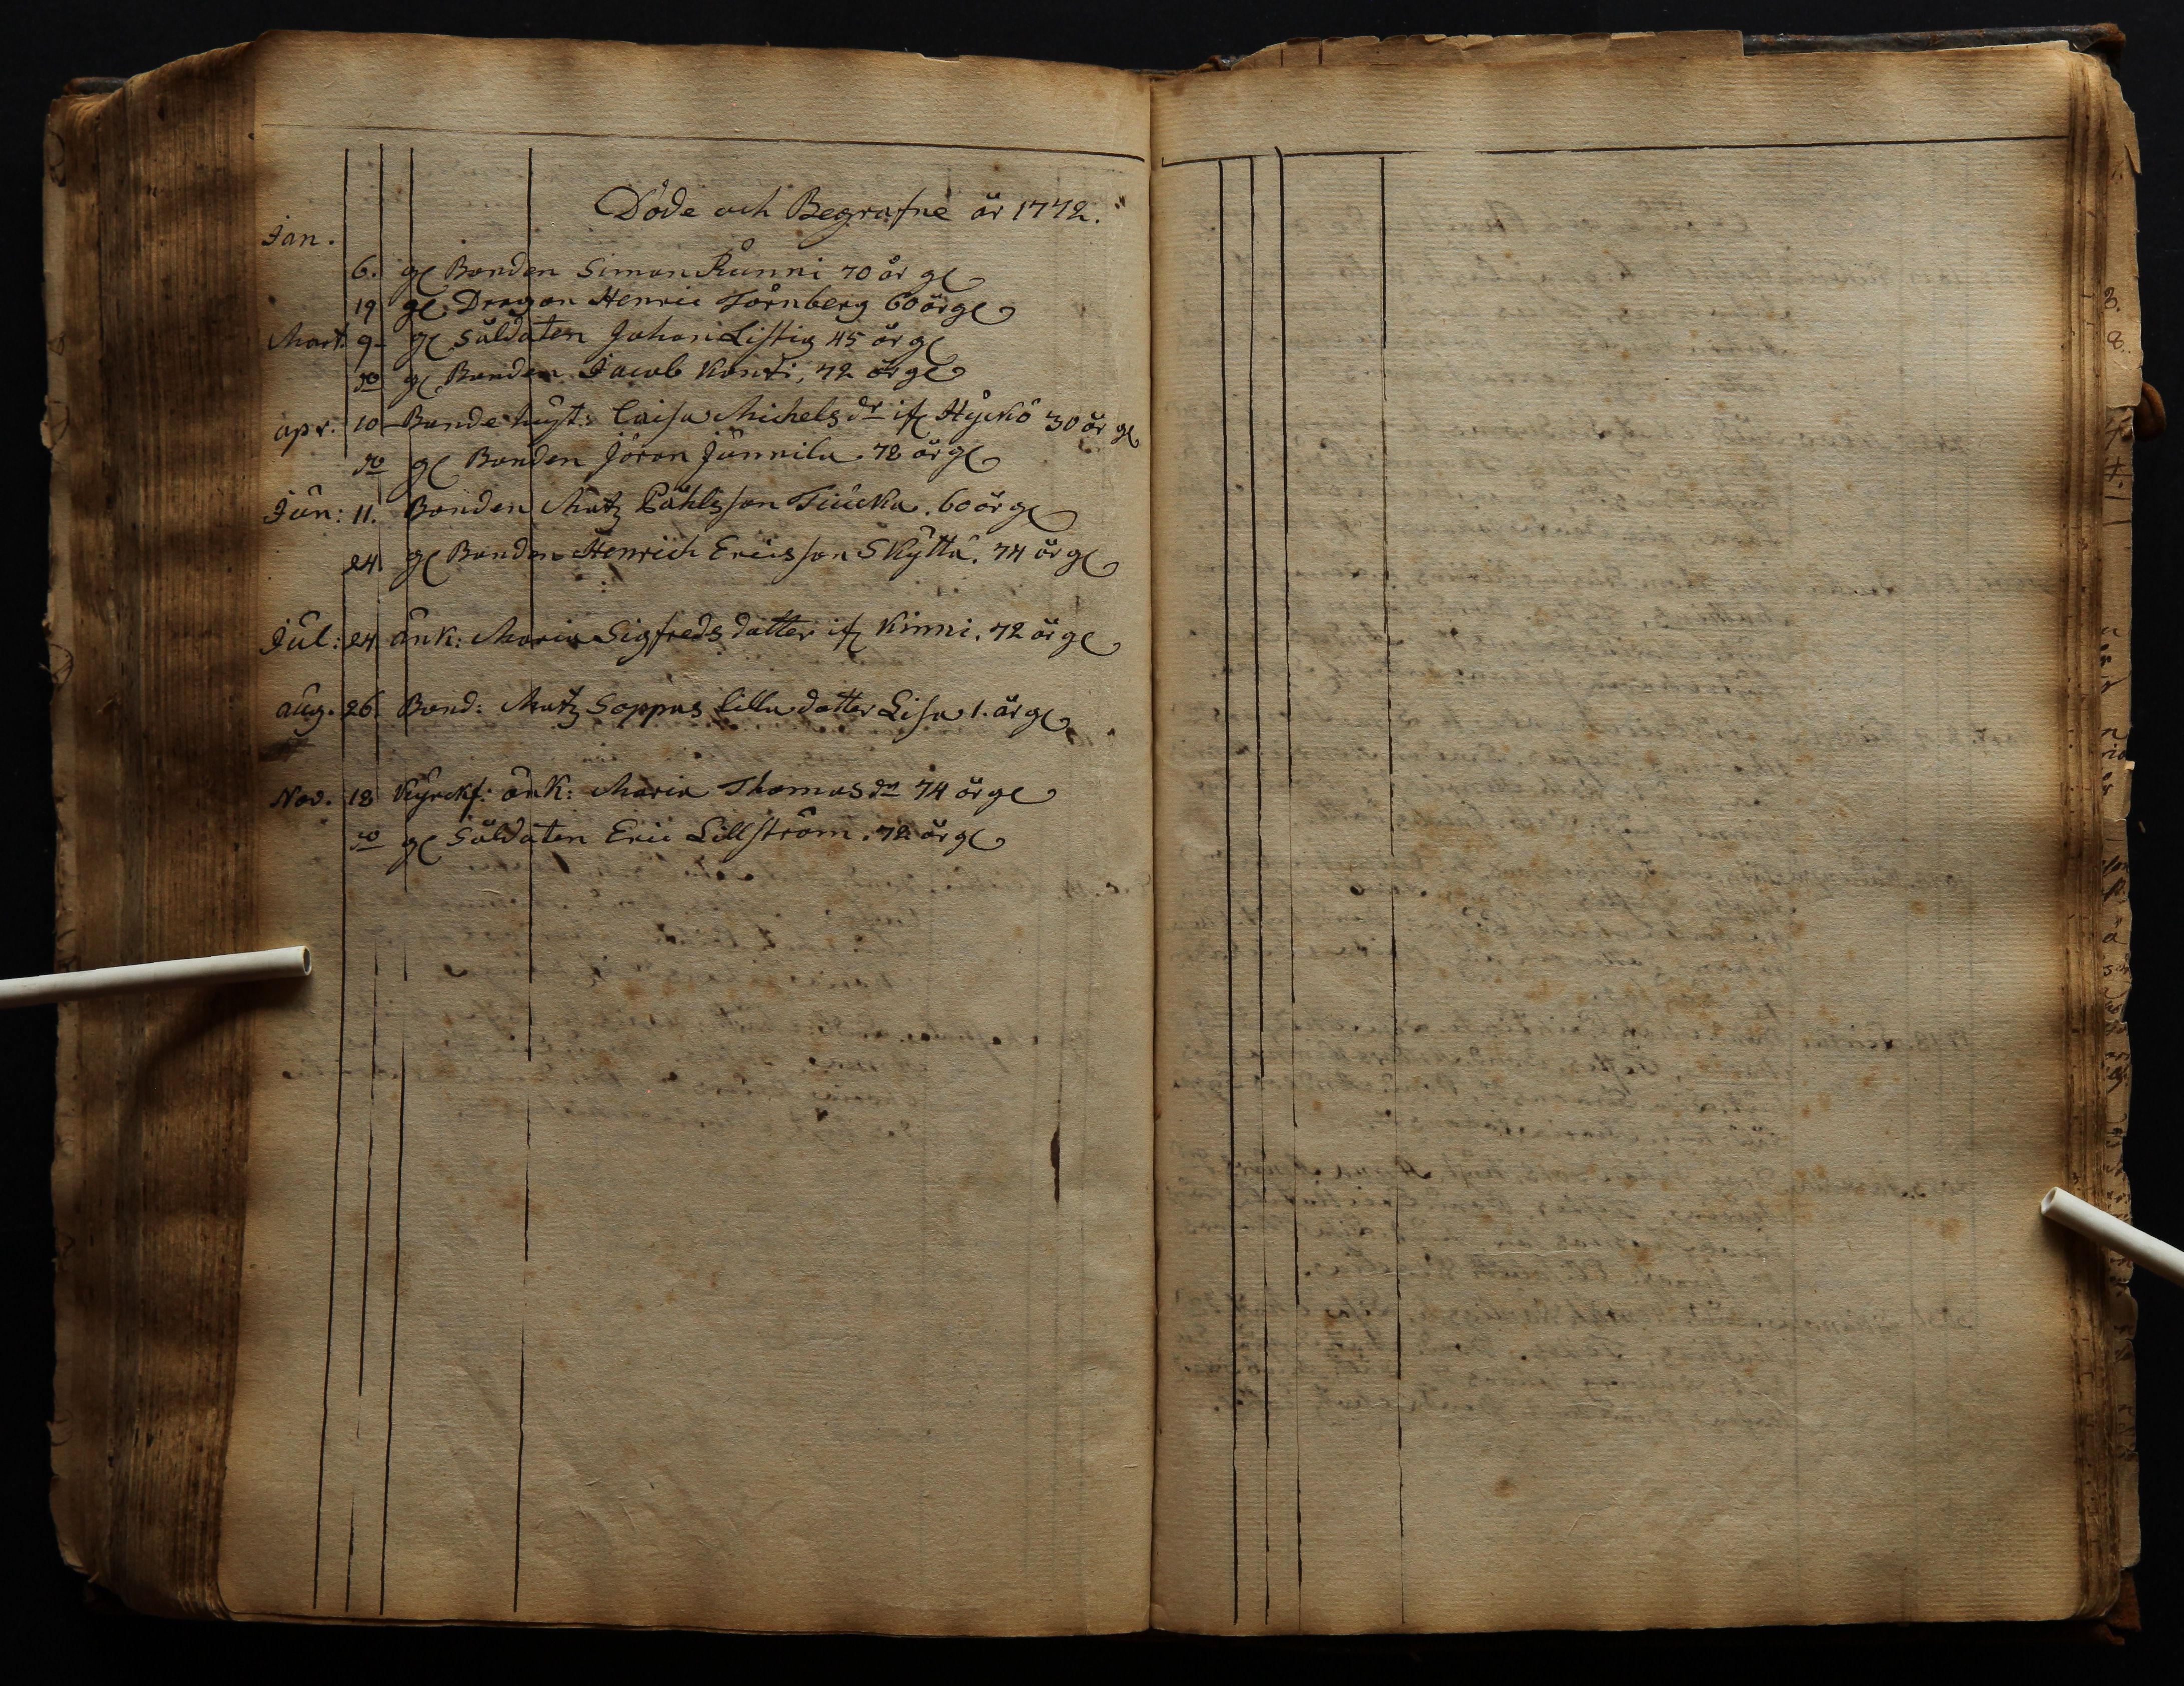 Döde och Begrafne år 1772.
Jan.
6. gl Bonden Simon Runni 70 år gl
19 gl. Dragon Henric Törnberg 60 år gl
Mart. 9 gl Suldaten Johan Listig 45 år gl
do gl Bonden Jacob Konti, 72 år gl
apr. 10 Bonde hust: Caisa Michels dr if Hyckö 30 år gl
do gl Bonden Jöran Junnila 72 år gl
Jun: 11. Bonden Matz Påhlsson Tiucka. 60 år gl
24 gl Bonden Henrich Ericsson Skyttä. 74 år gl
Jul: 24 änk: Maria Sigfreds datter if Kinni. 72 år gl
aug. 26 Bond: Matz Soppas lilla dotter Lisa 1. år gl
Nov. 18 Kyrckf: änk: Maria Thomas dr 74 år gl
do gl Suldaten Eric Lillström. 72 år gl